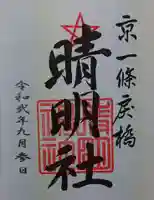 京一條戻橋
晴明社
令和弐年九月参日